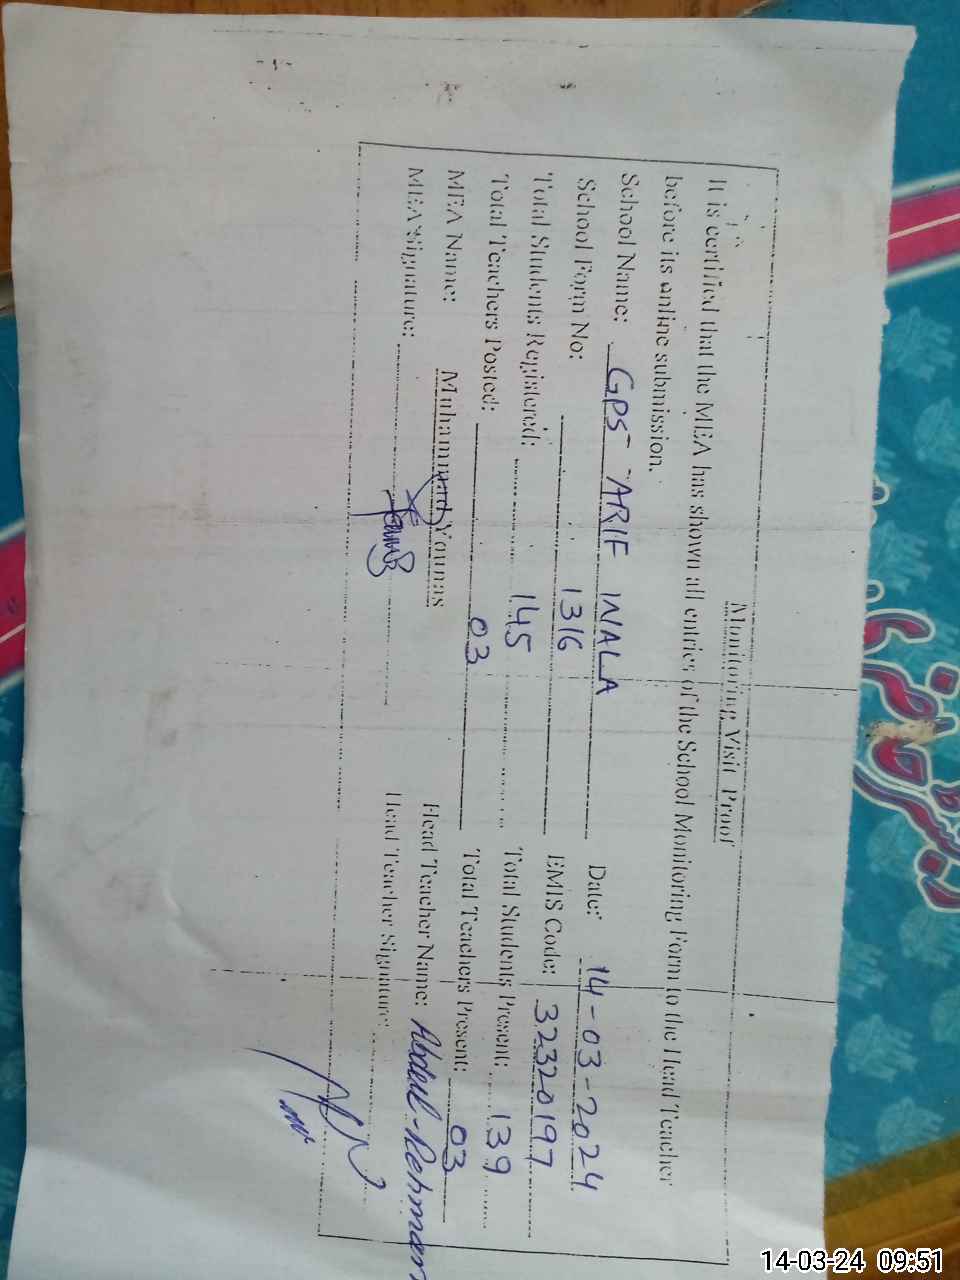 Monitoring Visit Proof
It is certified that the MEA has shown all entries of the School Monitoring Form to the Head Teacher
before its online submission.
School Name: GPS - ARIF WALA Date: 14-03-2024
School Form No: 1316 EMIS Code: 32320197
Total Students Registered: 145 Total Students Present: 139
Total Teachers Posted: 03 Total Teachers Present: 03
MEA Name: Muhammad Younas Head Teacher Name: Abdul-Rehman
MEA Signature: Head Teacher Signature:
14-03-24 09:51